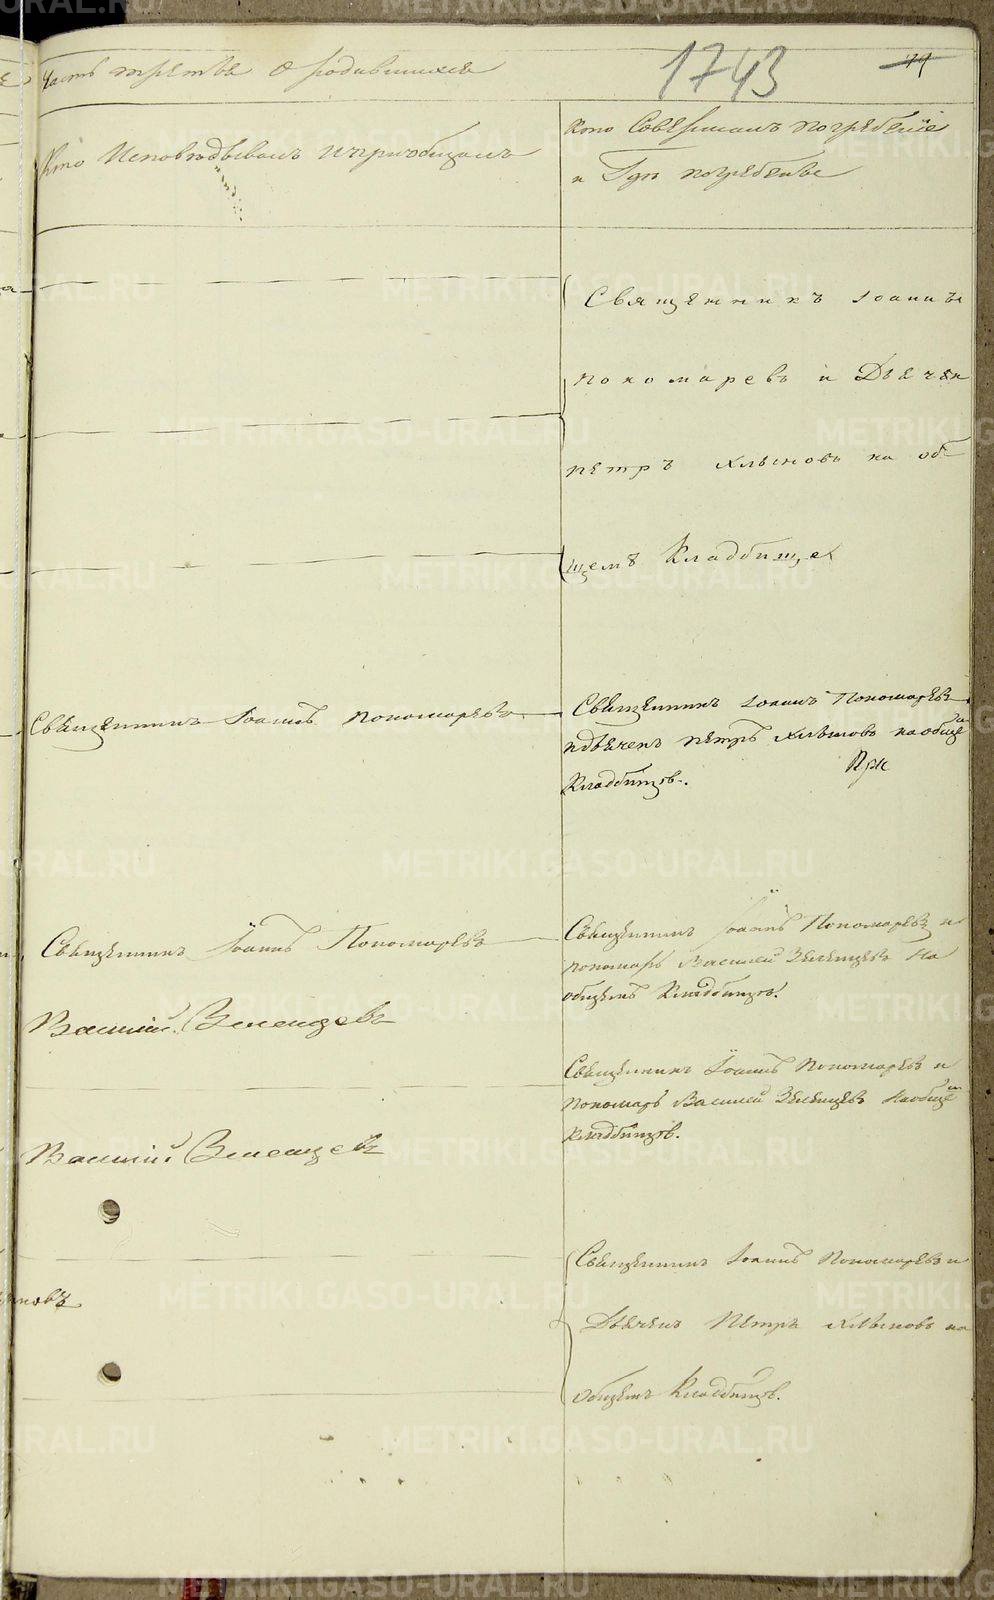 Часть третья о родившихся
1743
44
Кто Исповѣдывалъ и приобщалъ
Кто Совершалъ погребеніе
и Гдѣ погребены
Священникъ Іоаннъ
пономаревъ и Дьячекъ
петръ Хлыновъ на об
щемъ Кладбище
Священникъ Іоаннъ пономаревъ
Священникъ Іоаннъ Пономаревъ
и дьячекъ петръ Хлыновъ на обще
При
Кладбищѣ.
Священникъ Іоаннъ Пономаревъ
Священникъ Іоаннъ Пономаревъ и
пономарь Василей Зеленцевъ На
общемъ Кладбищѣ.
Василій Зеленцевъ
Священникъ Іоаннъ Пономаревъ и
пономарь Василей Зеленцевъ На обще
Кладбищѣ.
Василій Зеленцевъ
Священникъ Іоаннъ Пономаревъ и
Дьячекъ Петръ Хлыновъ на
общемъ Кладбищѣ.
METRIKI.GASO-URAL.RU